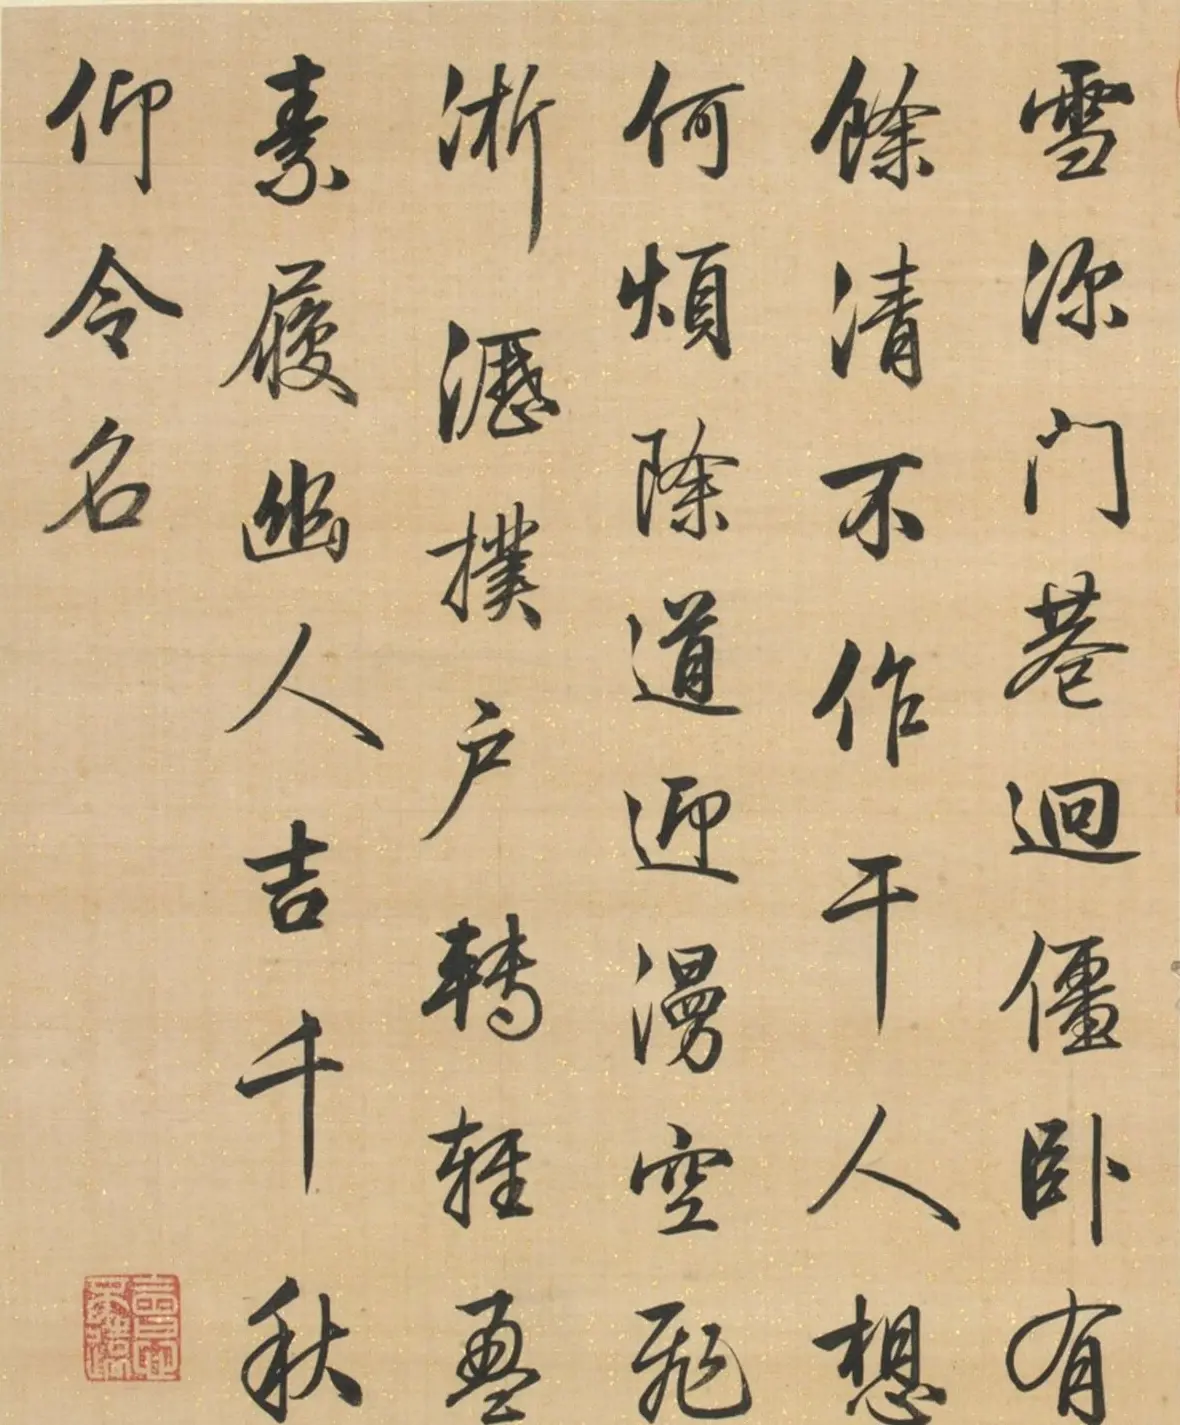 雪深门巷迴僵卧有
餘清不作干人想
何煩除道迎漫空飛
淅瀝撲户轉輕盈
素履幽人吉千秋
仰令名